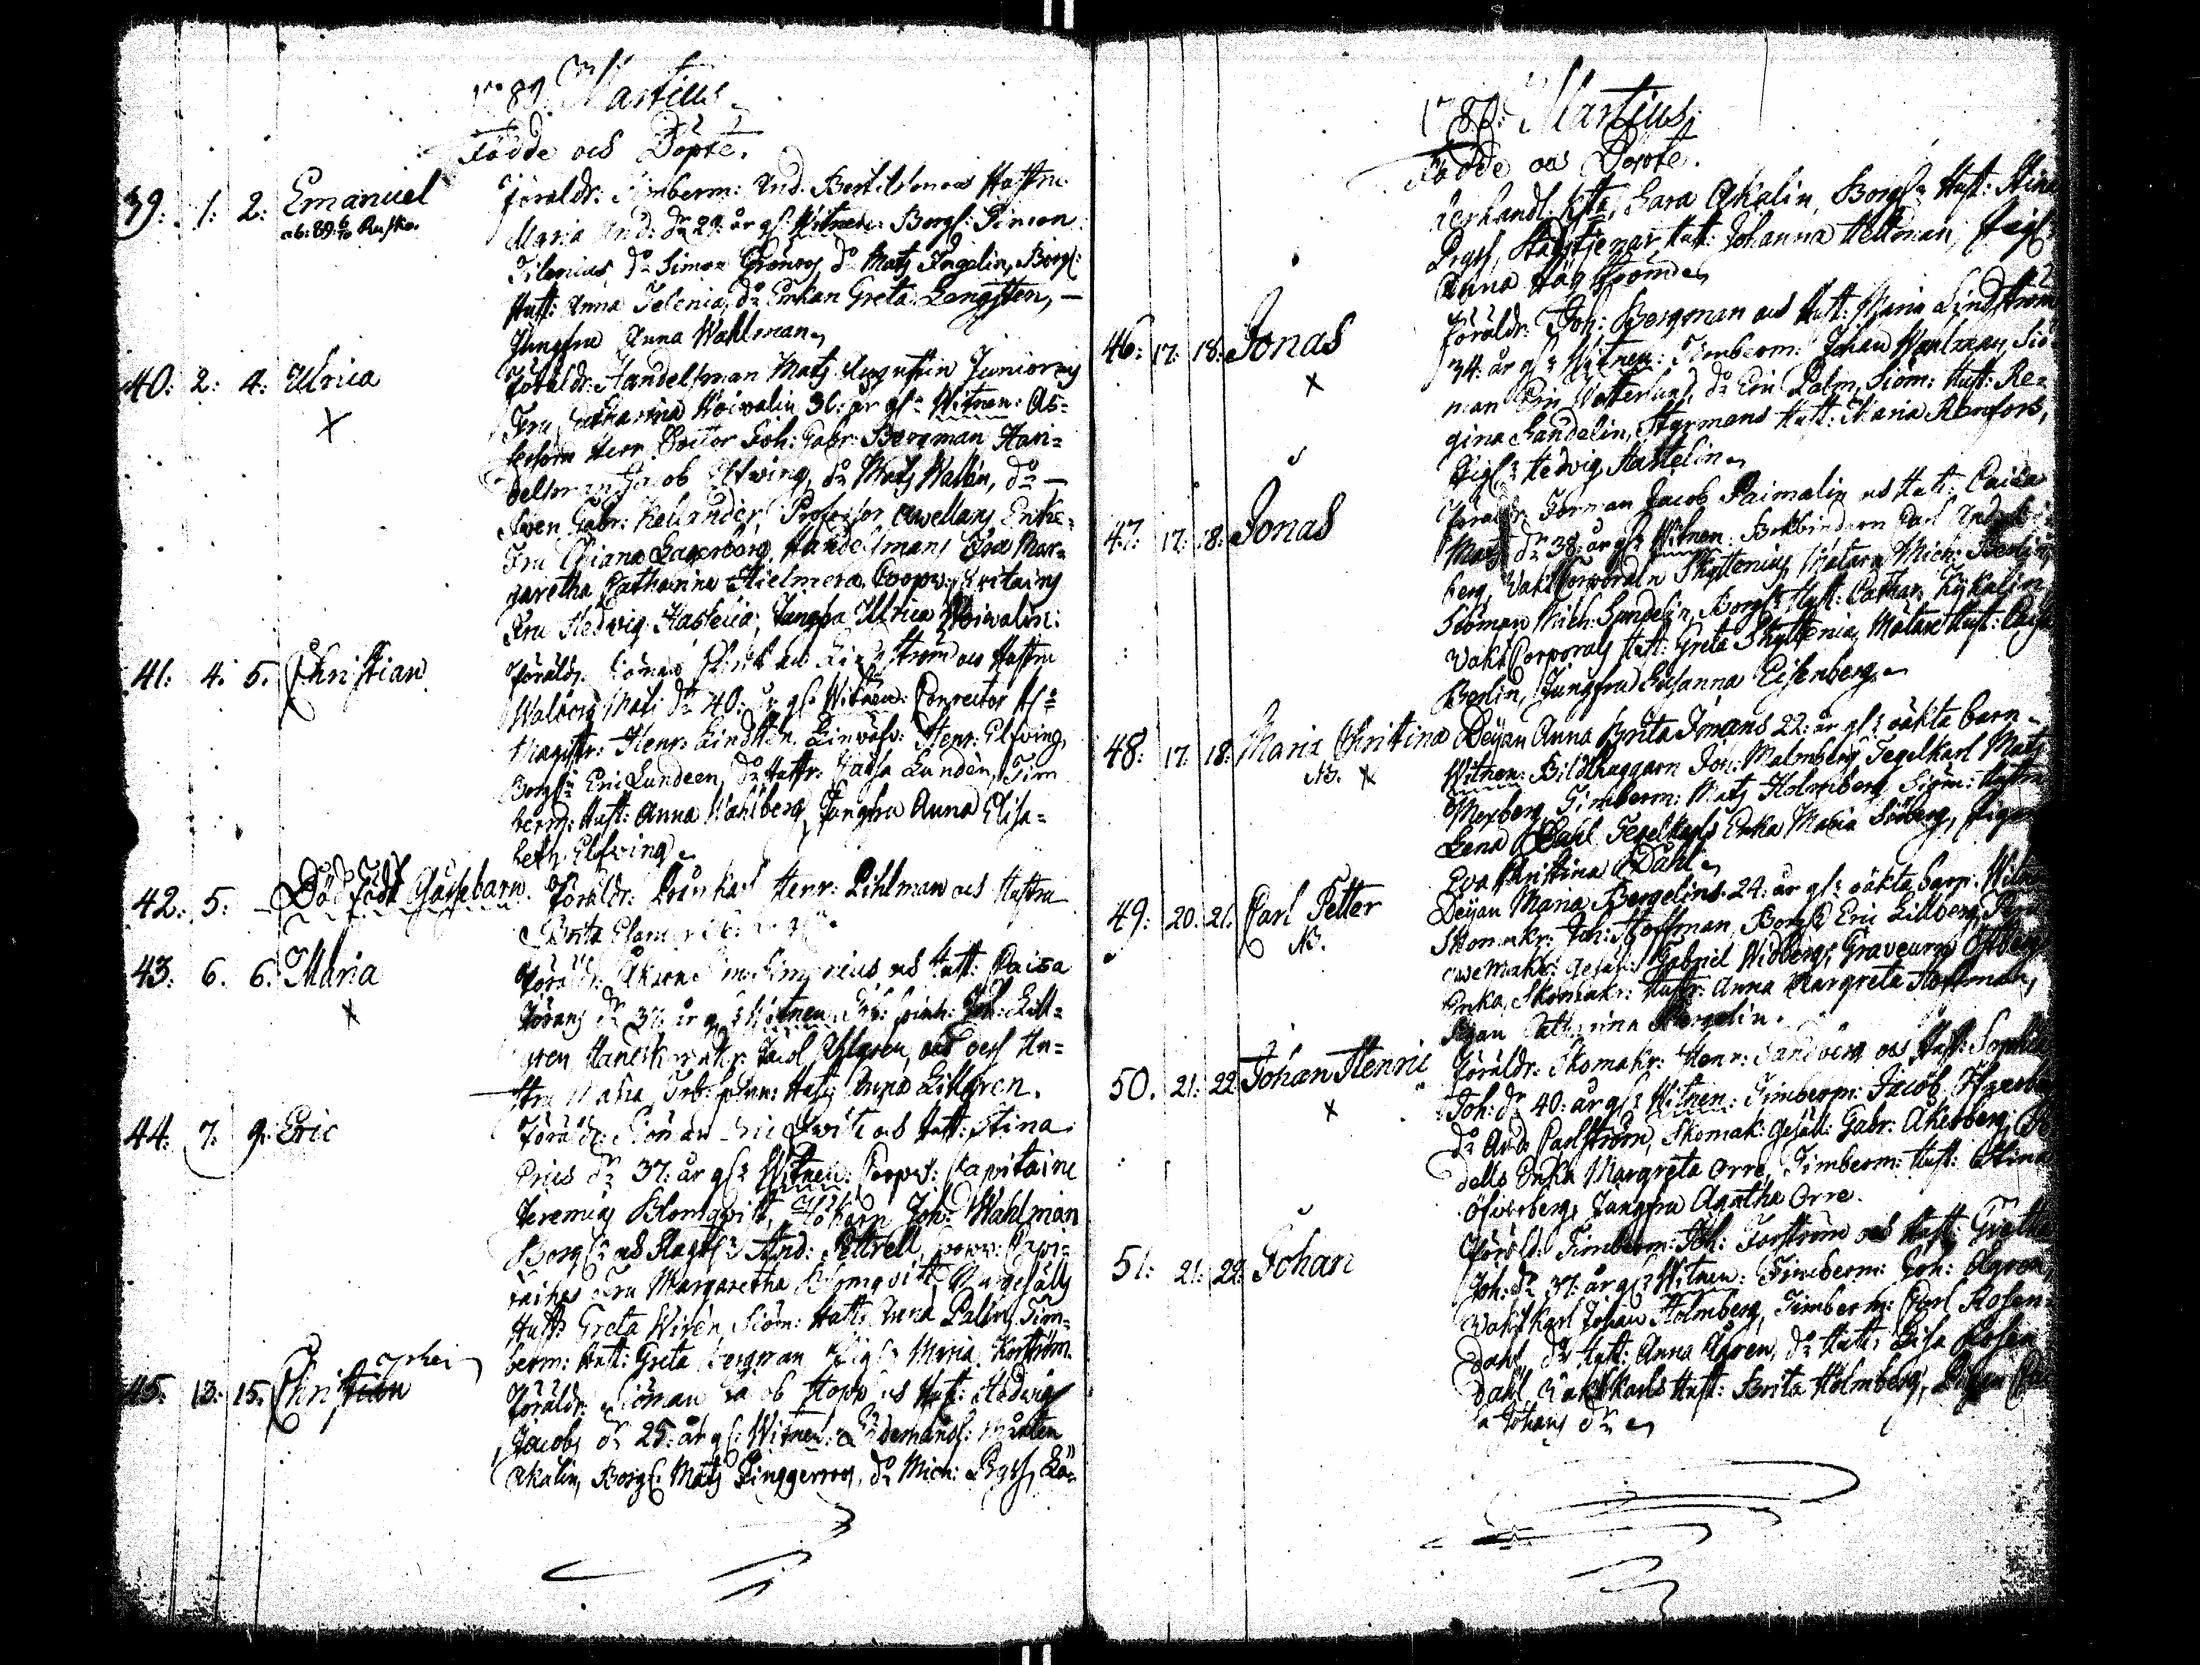 1789. Martius.
Födde och Döpte.
39: 1: 2: Emanuel Föräldr: Timberm: And. Bertilson och Hustru
Maria And: dr 29: år gl: Witnen: Borgl: Simon
Ilenius, do Simon Grönroos, do Matts Ingelin, Borgl:
Hust: Anna Ilenia, do Enkan Greta Lengsten, —
Jungfru Anna Wahlman
40: 2: 4: Ulrica Föräldr: Handelsman Matts Augustin Junior och
X Fru Catharina Woivalin 36: år gl: Witnen: As=
sessorn Herr Doctor Joh: Gabr: Bergman Han=
delsman Jacob Elfwing, do Matts Wallén, do —
Sven Gabr: Kellander, Professor Avellans Enke=
Fru Diana Lagerborg, Handelsmans Fru Mar=
garetha Catharina Hielmera, Coopv: Capitains
Fru Hedwig Hastelia, Jungfru Ulrica Woivalin:
41: 4: 5. Christian Föräldr: Siöman och Hustru
Walborg Mats dr 40: år gl: Witnen: Conrector H:
Magistr: Henr: Lindsten, Linwäfv: Henr: Elfving,
Borgl: Eric Lundeen, do Hustr: Caisa Lundén, Tim
berm: Hust: Anna Wahlberg, Jungfru Anna Elisa=
beth Elfving
42: 5: — Dödfödt Gåssebarn. Föräldr: Henr: Pihlman och Hustru
Brita
43: 6. 6: Maria Föräldr: och Hust: Caisa
X Görans dr 37: år gl: Witnen: Joh: Lill=
gren Handskmakr: Carl Ahlgren, och dess Hu=
stru Maria, Hust: Anna Lillgren.
44: 7: 9: Eric Föräldr: Siöman Eric Qwist och Hust: Stina
Erics dr 37: år gl: Witnen: Coopv: Capitaine
Jeremias Blomqvist, Hökarn Joh: Wahlman
Borgl: And: Pettrell, Coopv: Capi=
taines Fru Margaretha Blomqvist, Murgesälls
Hust: Greta Wirén, Siöm: Hust: Anna Palin, Tim=
berm: Hust: Greta Bergman Pigl: Maria Korström
45. 13: 15. Christian opher Föräldr: Siöman Jacob Hopp och Hust: Hedwig
Jacobs dr 25: år gl: Witnen: Mårten
Akalin, Borgl: Matts Linggerroos, do Mich: Prytz, Lä=
1789: Martius:
Födde och Döpte.
Sara Akalin, Borgl: Hust: Stina
Prytz, Hust: Johanna Hellman, Pigl:
Anna Hägström
46: 17: 18: Jonas Föräldr: Joh: Bergman och Hust: Maria Lindström
X 34: år gl: Witnen: Timberm: Johan Wahlman, Siö
man Eric Wetterlund, do Eric Palm, Siöm: Hust: Re=
gina Sandelin, Styrmans Hust: Maria Ramfors,
Pigl: Hedvig Hastelin
47: 17: 18: Jonas Föräldr: Forman Jacob Paimalin och Hust: Caisa
Mats dr 38: år gl: Witnen: Bokbindarn Carl Und
berg, Vakt Corporaln Skyttenius, Mätarn Mich: Berlin,
Sioman Mich: Sandelin, Borgl: Hust: Cathar: Kykalin
Vakt Corporals Hust: Greta Skyttenia, Mätar Hust: Caisa
Berlin, Jungfru Susanna Eisenberg
48: 17: 18: Maria Christina Dejan Anna Brita Simons 22: år gl: oäkta barn
NB. X Witnen: Bildhuggarn Joh: Malmberg, Tegelkarl Matts
Mexberg, Timberm: Matts Holmberg, Siöm: Hustru
Lena Dahl, Tegelkarls Enka Maria Söberg, Pigan
Eva Christina Dahl
49: 20: 21: Carl Petter Dejan Maria Bergelins 24: år gl: oäkta barn. Witnen
NB. Skomakr: Joh: Hoffman, Borgl: Eric Lillberg, Peru
qvemakr: Gesäll: Gabriel Widberg, Graveurns Östberg
Enka, Skomakr: Hustr: Anna Margreta Hoffman,
Pigan Catharina Bergelin.
50. 21: 22: Johan Henric Föräldr: Skomakr: Henr: Sandberg och Hust: Sophia
X Joh: dr 40: år gl: Witnen: Timberm: Jacob Öfverberg
do And: Carlström, Skomak: Gesäll: Gabr: Åkerberg,
dells Enka Margreta Orre, Timberm: Hust: Stina
Öfverberg, Jungfru Agatha Orre.
51: 21: 22: Johan Föräld: Timberm: Joh: Forström och Hust: Gretha
Joh: dr 37: år gl: Witnen: Timberm: Joh: Ågren,
Vaktkarl Johan Holmberg, Timberm: Carl Rosen=
dahl, do Hust: Anna Ågren, do Hust: Lisa Rosen
dahl, Vaktkarls Hust: Brita Holmberg, Pigan Cai
sa Johans dr